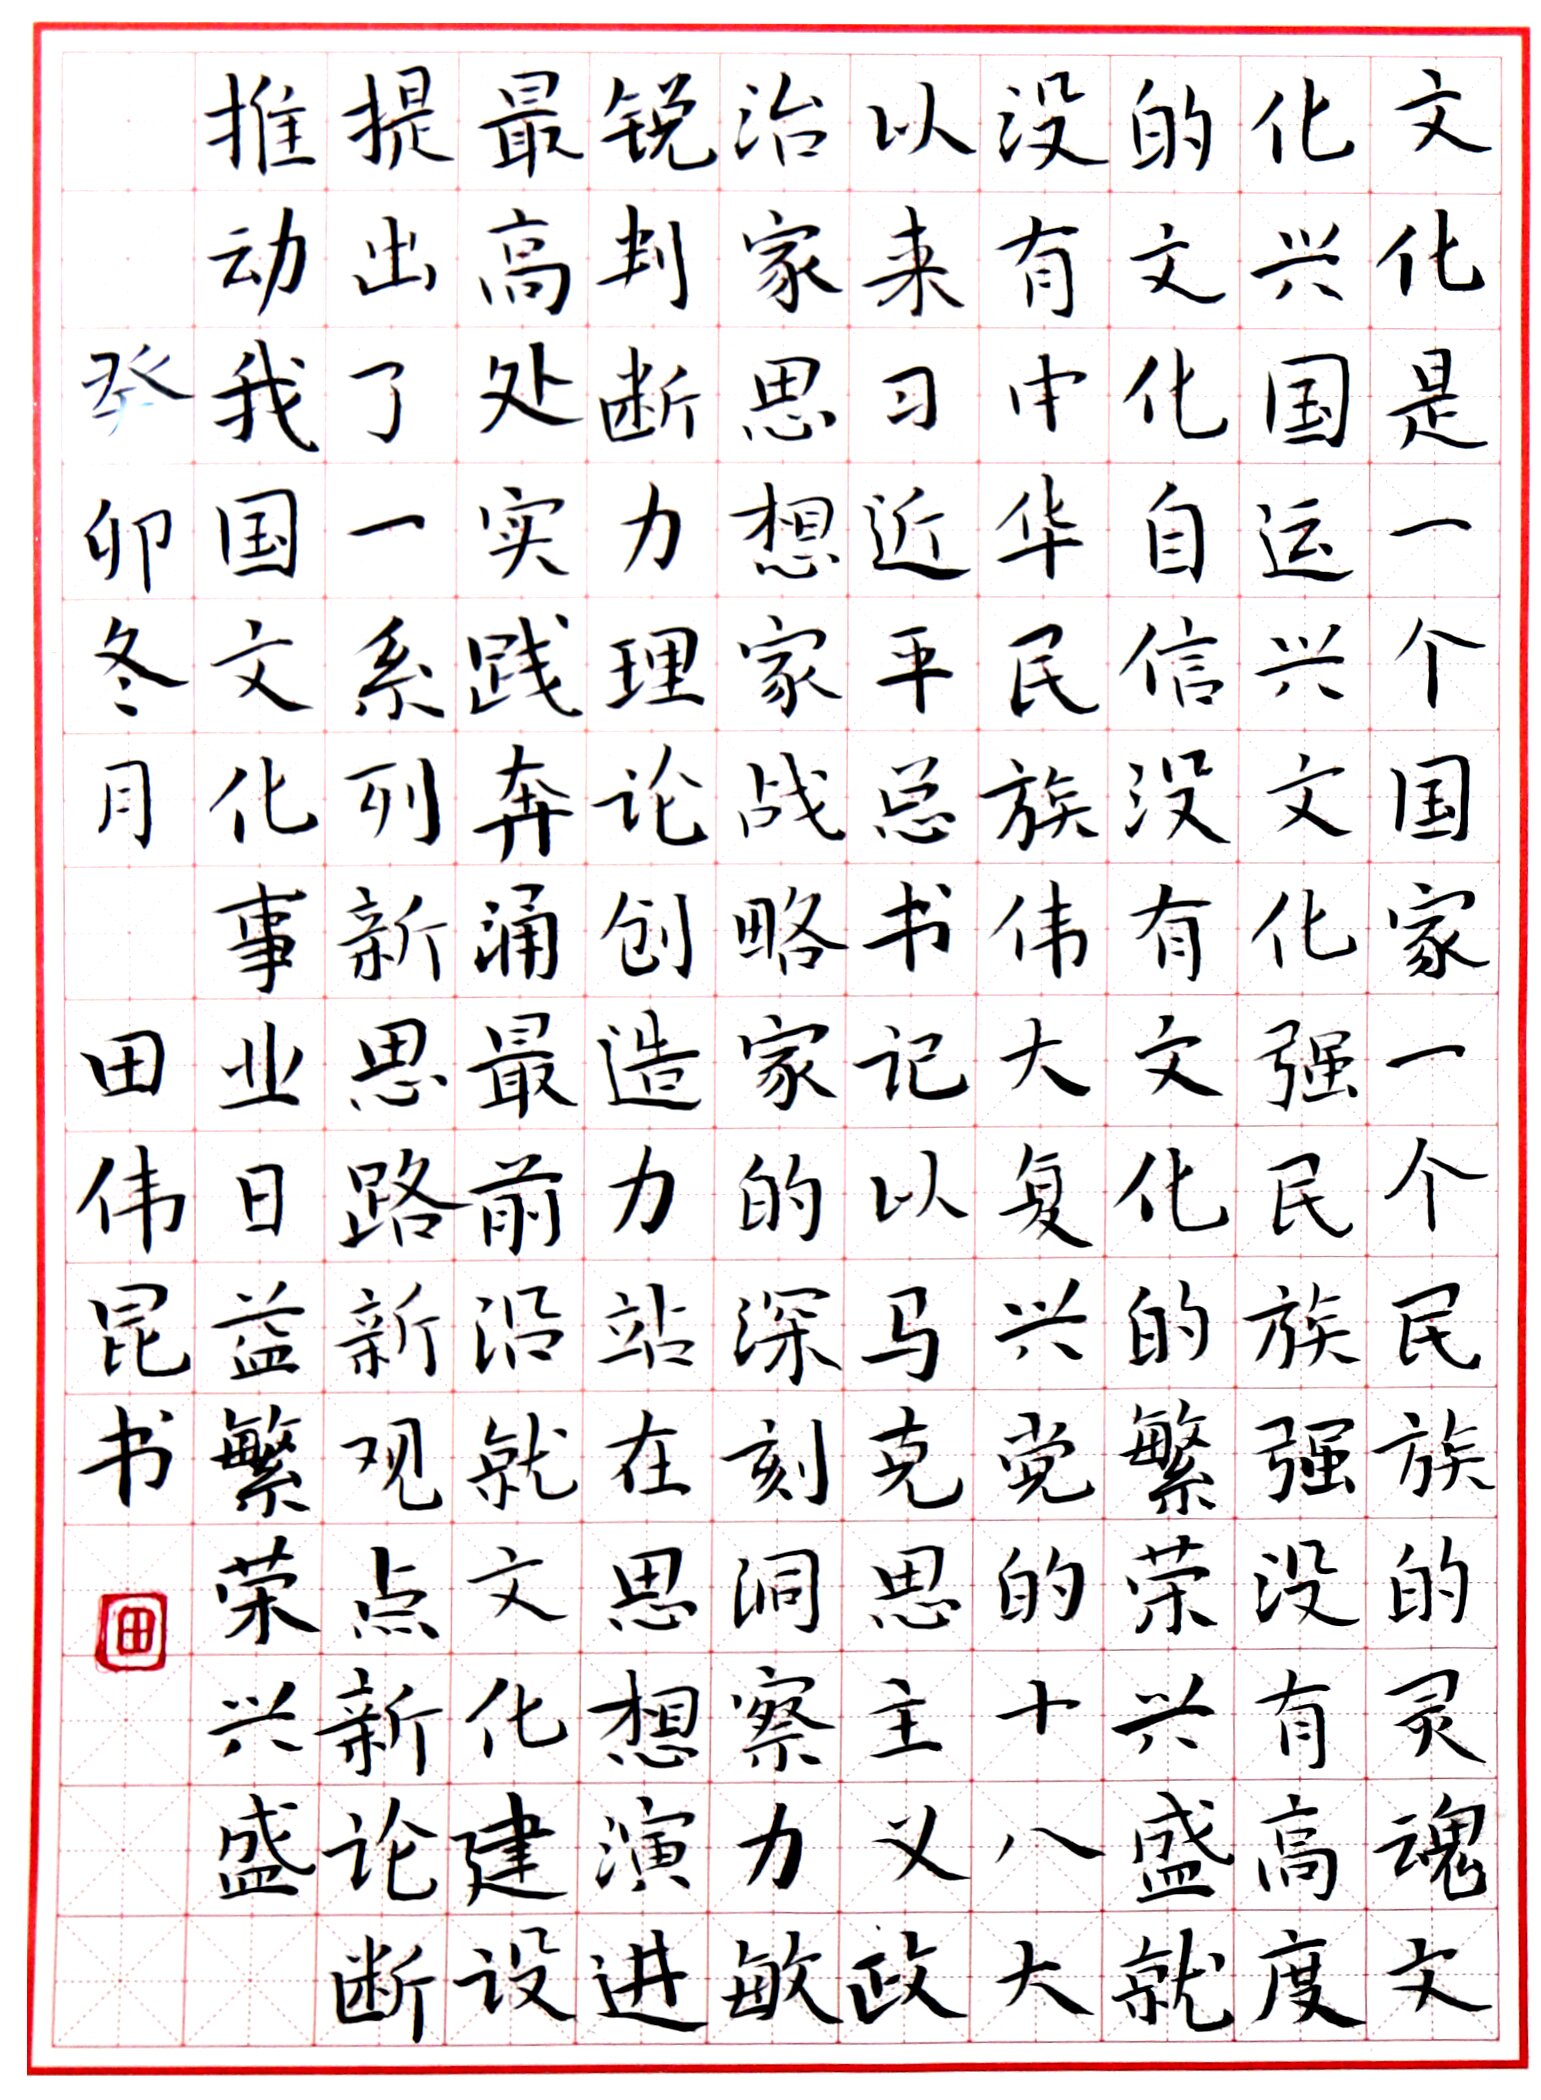 文化是一个国家一个民族的灵魂文
化兴国运兴文化强民族强没有高度
的文化自信没有文化的繁荣兴盛就
没有中华民族伟大复兴党的十八大
以来习近平总书记以马克思主义政
治家思想家战略家的深刻洞察力敏
锐判断力理论创造力站在思想演进
最高处实践奔涌最前沿就文化建设
提出了一系列新思路新观点新论断
推动我国文化事业日益繁荣兴盛
癸卯冬月 田伟昆书
田